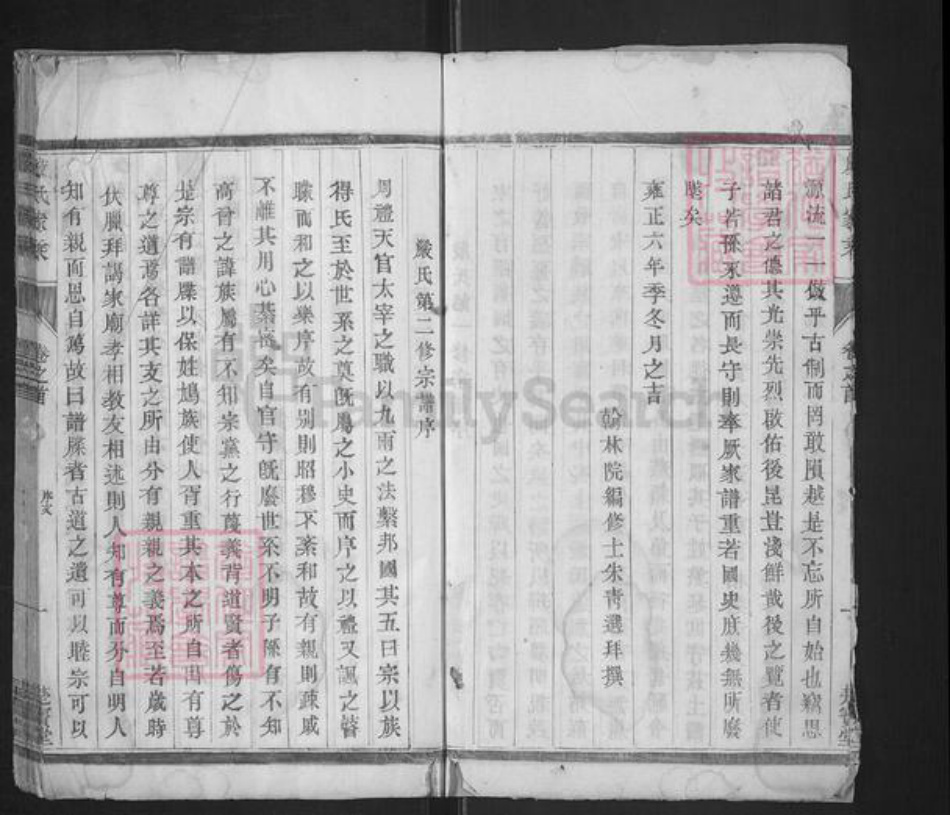 源流一一倣乎古制而罔敢隕越是不忘所自始也竊思
諸君之德其光崇先烈啟佑後昆豈淺鮮哉後之覽者使
子若孫永遵而長守則奉厥家譜重若國史庶幾無所廢
墜矣
雍正六年季冬月之吉
翰林院編修士朱青選拜撰
嚴氏第二修宗譜序
周禮天官太宰之職以九兩之法繫邦國其五曰宗以族
得民至於世系之奠既屬之小史而序之以禮又諷之瞽
矇而和之以樂序故有別則昭穆不紊和故有親則疎戚
不離其用心綦密矣自官守既廢世系不明子孫有不知
高曾之諱族屬有不知宗黨之行蔑義背道賢者傷之於
是宗有譜牒以保姓鳩族使人胥重其本之所自出有尊
尊之道焉各詳其支之所由分有親親之義焉至若歲時
伏臘拜謁家廟孝相教友相述則人知有尊而分自明人
知有親而恩自篤故曰譜牒者古道之遺可以睦宗可以
卷之首
序文
FamilySearch